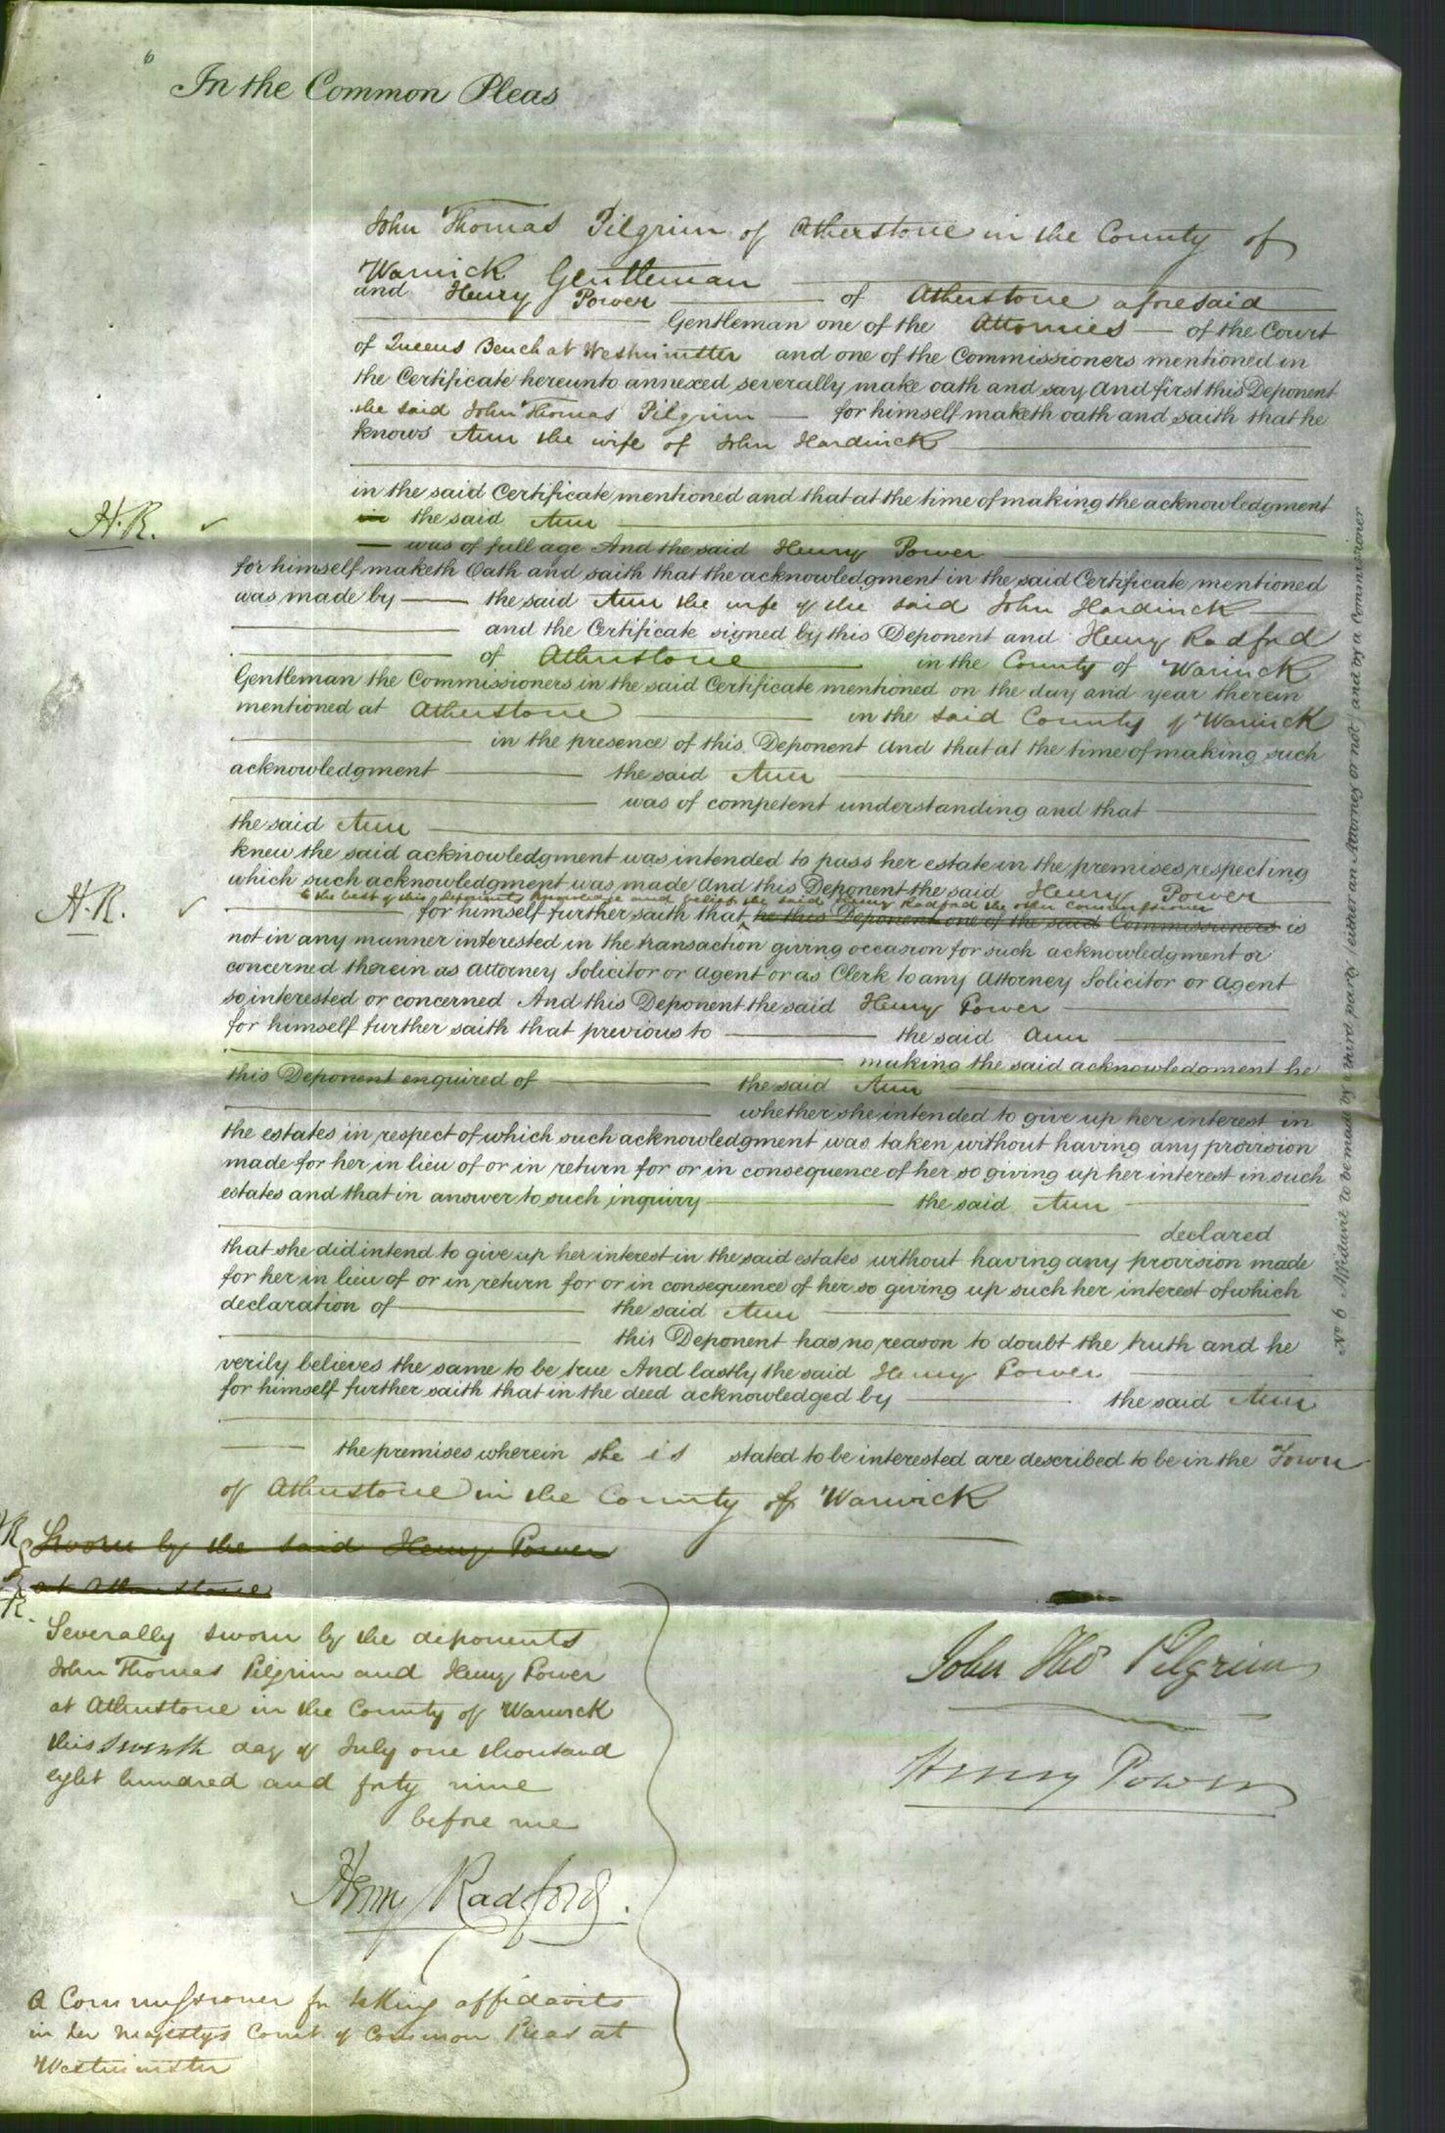 6
In the Common Pleas
John Thomas Pilgrim of Atherstone in the County of
Warwick Gentleman
and Henry Power of Atherstone aforesaid
Gentleman one of the Attornies of the Court
of Queens Bench at Westminster and one of the Commissioners mentioned in
the Certificate hereunto annexed severally make oath and say And first this Deponent
the said John Thomas Pilgrim for himself maketh oath and saith that he
knows Ann the wife of John Hardwick
in the said Certificate mentioned and that at the time of making the acknowledgment
H.R.
in the said Ann
was of full age And the said Henry Power
for himself maketh Oath and saith that the acknowledgment in the said Certificate mentioned
was made by the said Ann the wife of the said John Hardwick
and the Certificate signed by this Deponent and Henry Radford
of Atherstone in the County of Warwick
Gentleman the Commissioners in the said Certificate mentioned on the day and year therein
mentioned at Atherstone in the said County of Warwick
in the presence of this Deponent And that at the time of making such
acknowledgment the said Ann
was of competent understanding and that
the said Ann
knew the said acknowledgment was intended to pass her estate in the premises respecting
which such acknowledgment was made And this Deponent the said Henry Power
H.R.
to the best of this Deponents knowledge and belief the said Henry Radford the other Commissioner
for himself further saith that he this Deponent one of the said Commissioners is
not in any manner interested in the transaction giving occasion for such acknowledgment or
concerned therein as Attorney Solicitor or Agent or as Clerk to any Attorney Solicitor or Agent
so interested or concerned And this Deponent the said Henry Power
for himself further saith that previous to the said Ann
making the said acknowledgment he
this Deponent enquired of the said Ann
whether she intended to give up her interest in
the estates in respect of which such acknowledgment was taken without having any provision
made for her in lieu of or in return for or in consequence of her so giving up her interest in such
estates and that in answer to such inquiry the said Ann
declared
that she did intend to give up her interest in the said estates without having any provision made
for her in lieu of or in return for or in consequence of her so giving up such her interest of which
declaration of the said Ann
this Deponent has no reason to doubt the truth and he
verily believes the same to be true And lastly the said Henry Power
for himself further saith that in the deed acknowledged by the said Ann
the premises wherein she is stated to be interested are described to be in the Town
of Atherstone in the County of Warwick
Sworn by the said Henry Power
at Atherstone
Severally sworn by the deponents
John Thomas Pilgrim and Henry Power
at Atherstone in the County of Warwick
this Seventh day of July one thousand
eight hundred and forty nine
before me
Henry Radford.
A Commissioner for taking affidavits
in her Majestys Court of Common Pleas at
Westminster
John Thos Pilgrim
Henry Power
No 6 Affidavit to be made by a third party (either an Attorney or not) and by a Commissioner